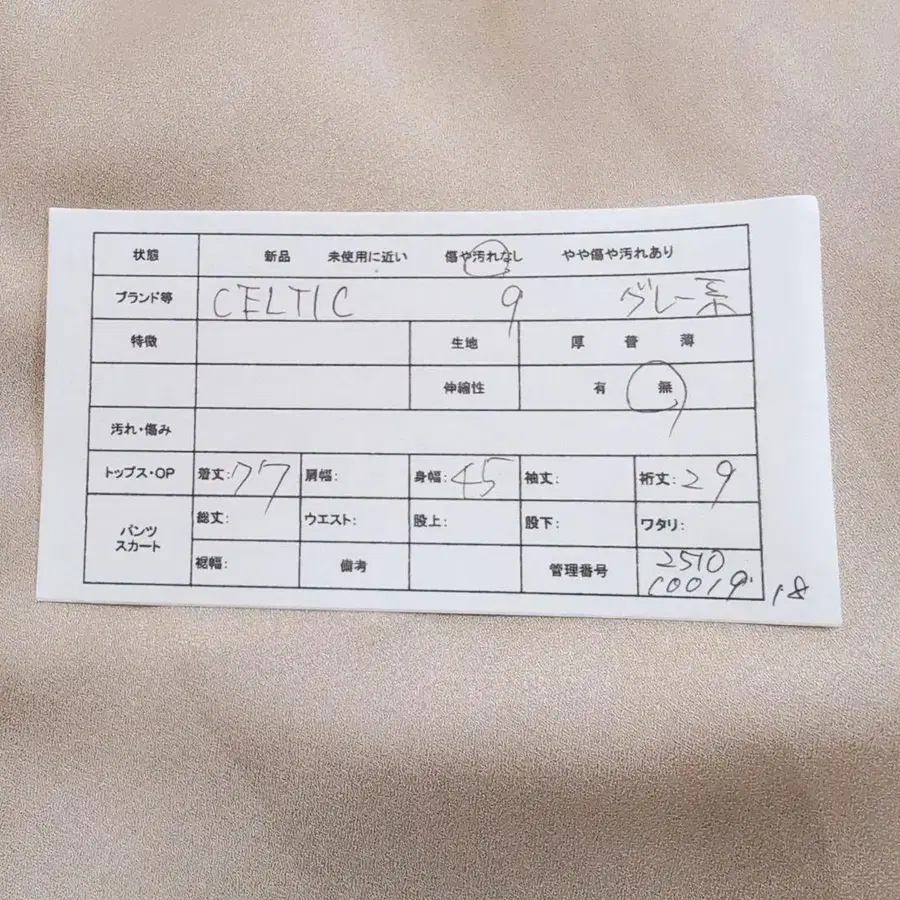 状態 新品 未使用に近い 傷や汚れなし やや傷や汚れあり
ブランド等 CELTIC 9 グレー系
特徴 生地 厚 普 薄
伸縮性 有 無
汚れ・傷み
トップス・OP 着丈:77 肩幅: 身幅:45 袖丈: 裄丈:29
パンツ
スカート
総丈: ウエスト: 股上: 股下: ワタリ:
裾幅: 備考 管理番号 2510
10019 18